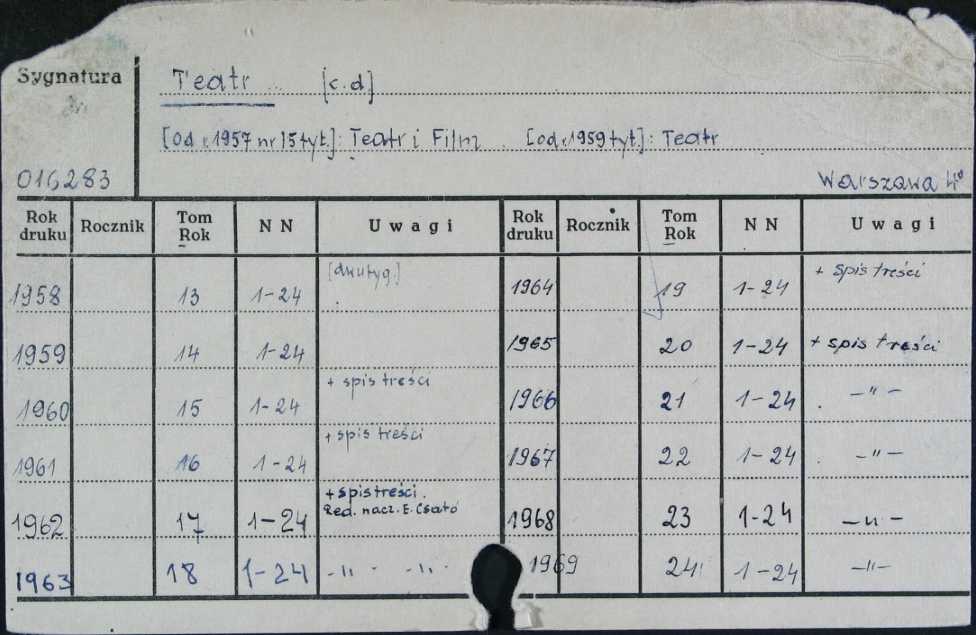 Sygnatura
Teatr [c.d]
[od r. 1957 nr 15 tyt.]: Teatr i Film [od r. 1959 tyt.]: Teatr
016283
Warszawa 4°
Rok druku Rocznik Tom Rok N N Uwagi Rok druku Rocznik Tom Rok N N Uwagi
1958 13 1-24 [dwutyg.] 1964 19 1-24 + spis treści
1959 14 1-24 1965 20 1-24 + spis treści
1960 15 1-24 + spis treści 1966 21 1-24 -"-
1961 16 1-24 + spis treści 1967 22 1-24 -"-
1962 17 1-24 + spis treści. Red. nacz. E. Csató 1968 23 1-24 -"-
1963 18 1-24 -"- -"- 1969 24 1-24 -"-